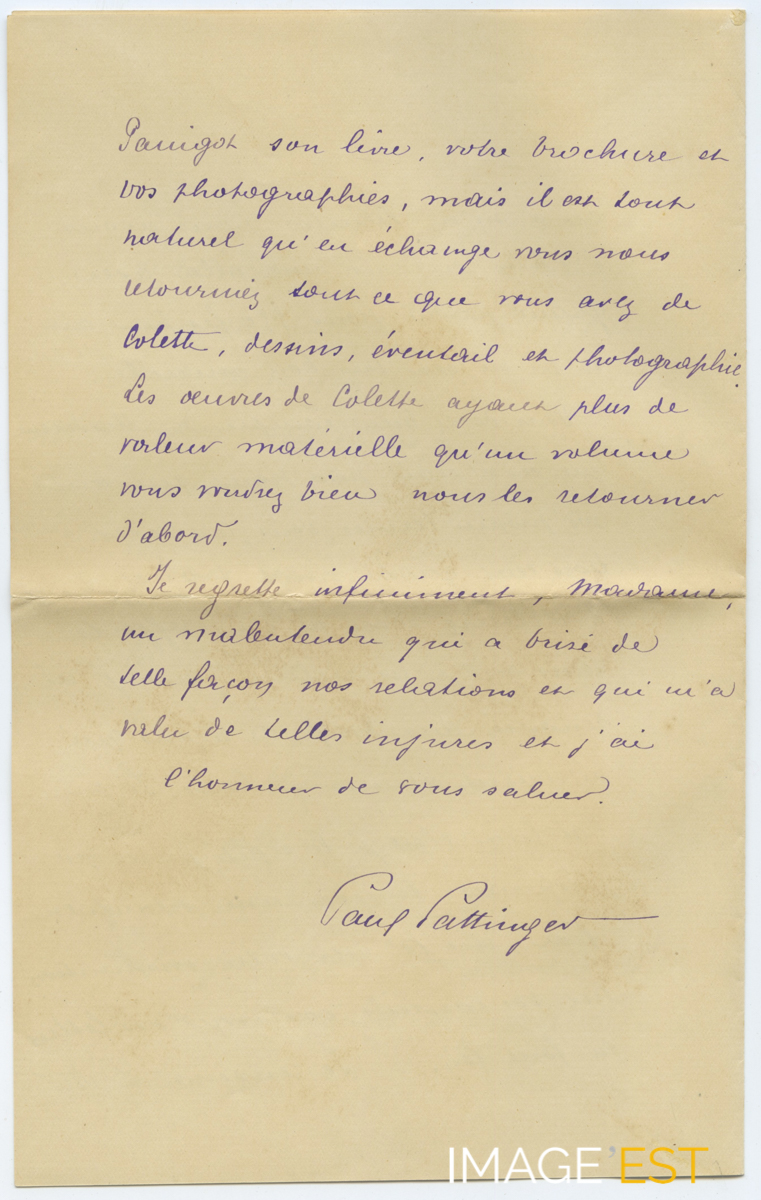 Panigot son livre, votre brochure et
vos photographies, mais il est tout
naturel qu'en échange vous nous
retourniez tout ce que vous avez de
Colette, dessins, éventail et photographie.
Les œuvres de Colette ayant plus de
valeur matérielle qu'un volume
vous voudrez bien nous les retourner
d'abord.
Je regrette infiniment, Madame,
un malentendu qui a brisé de
telle façon nos relations et qui m'a
valu de telles injures et j'ai
l'honneur de vous saluer.
Paul Pattinger
IMAGE'EST